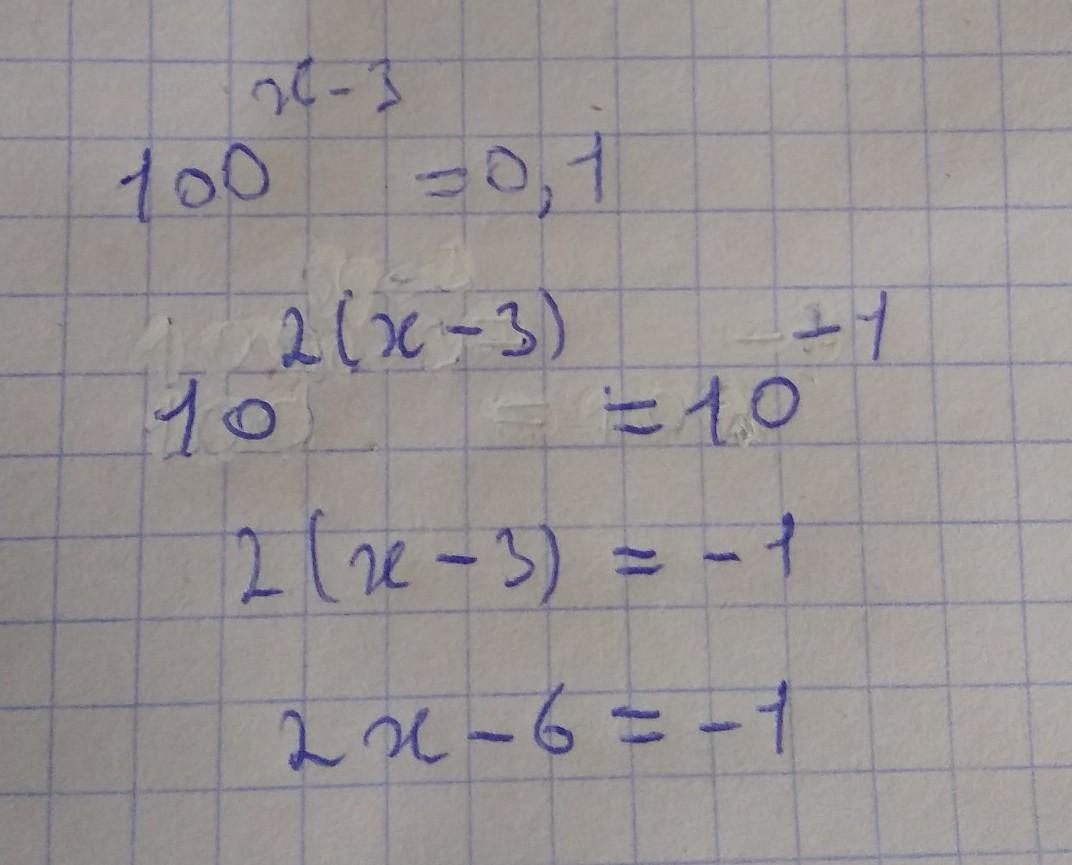 100^{x-3} = 0,1
10^{2(x-3)} = 10^{-1}
2(x-3) = -1
2x-6 = -1